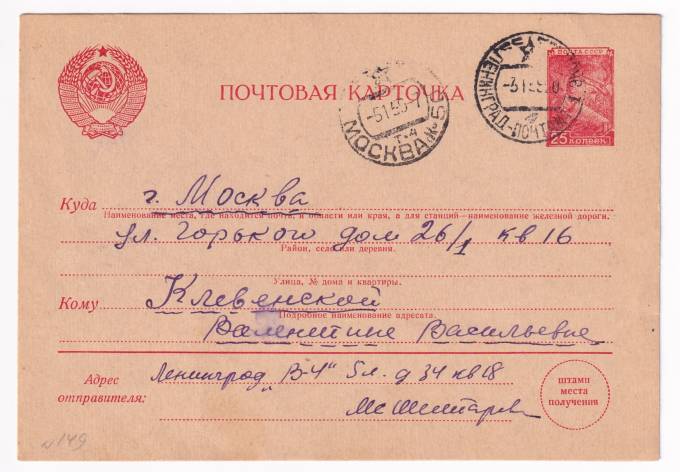 ПОЧТА СССР
25 КОПЕЕК
ПОЧТОВАЯ КАРТОЧКА
ЛЕНИНГРАД-ПОЧТАМТ
-3155.0
-5155-7
МОСКВА
Т-4
Куда г. Москва
Наименование места, где находится почта, и области или края, а для станций—наименование железной дороги.
ул. Горького дом 26/1 кв 16
Район, село или деревня.
Улица, № дома и квартиры.
Кому Клевенской
Подробное наименование адресата.
Валентине Васильевне
Адрес отправителя:
Ленинград „В-4" 5 л. д 34 кв 18
штамп
места
получения
№149